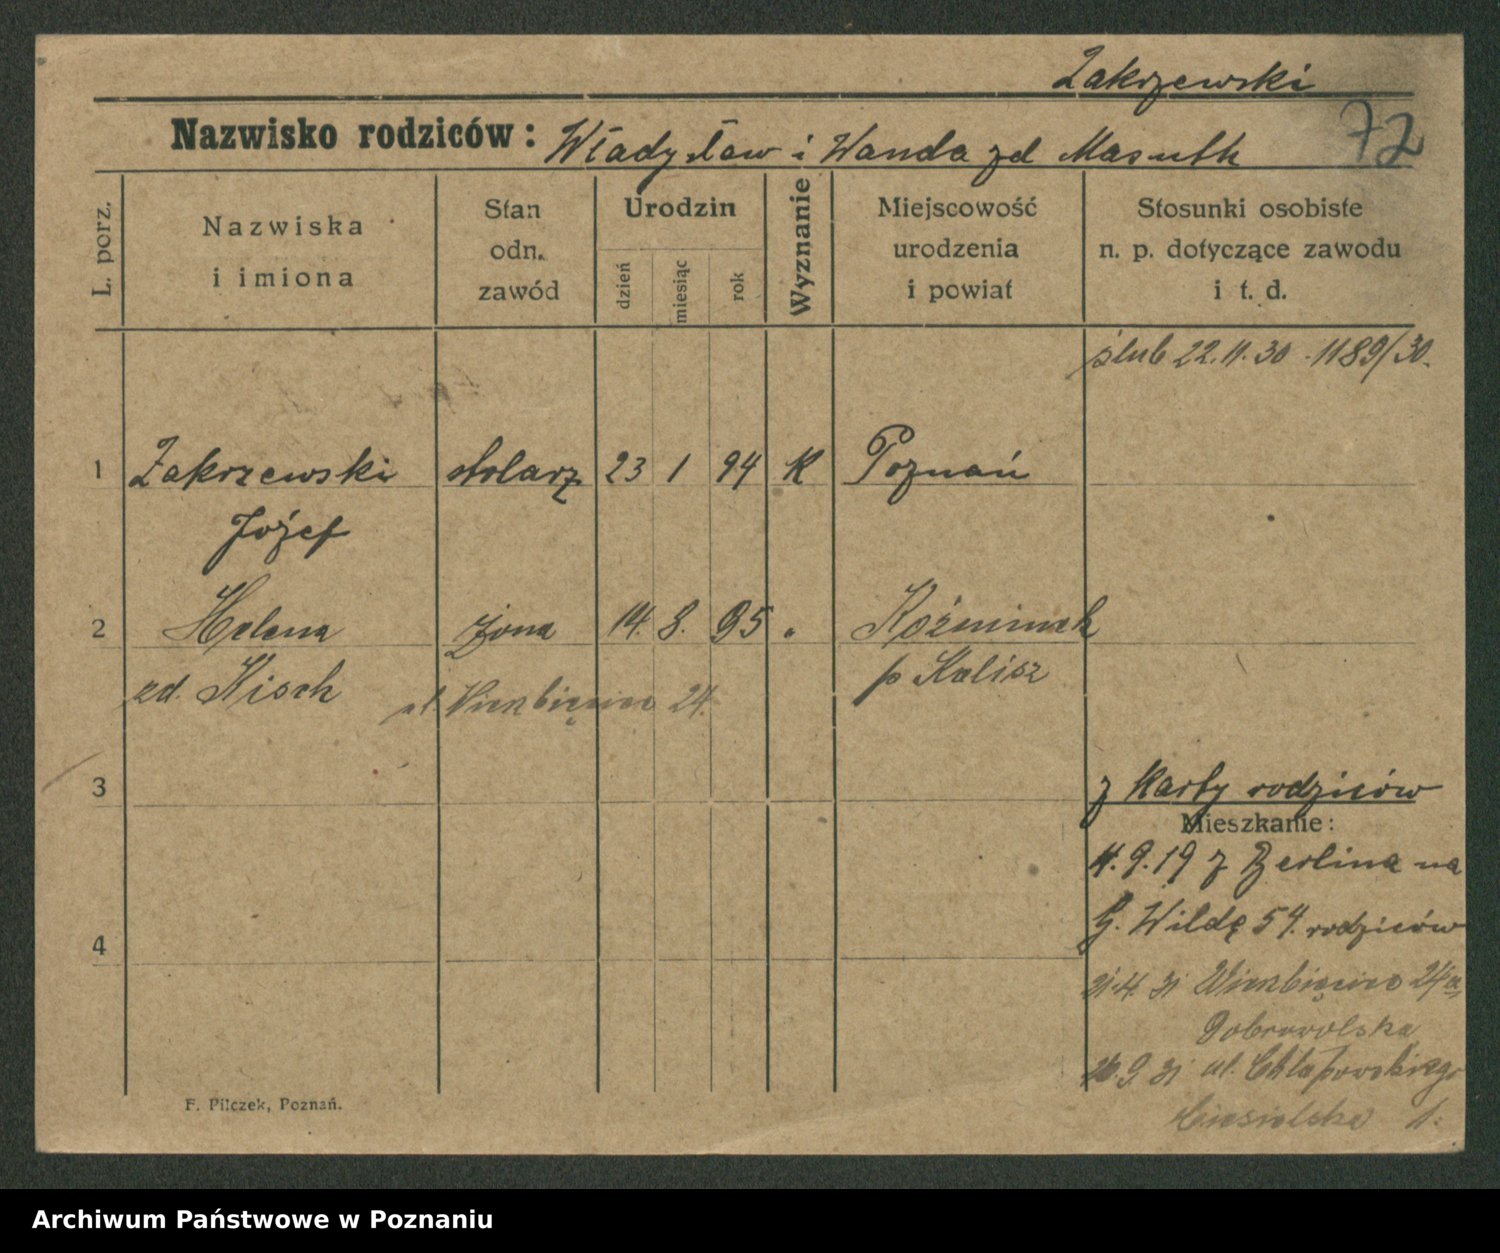 Zakrzewski
Nazwisko rodziców: Władysław i Wanda zd Masuth
72
L. porz.
Nazwiska i imiona
Stan odn. zawód
Urodzin
dzień miesiąc rok
Wyznanie
Miejscowość urodzenia i powiat
Stosunki osobiste n. p. dotyczące zawodu i t. d.
ślub 22.11.30 1189/30.
1 Zakrzewski stolarz 23 1 94 K Poznań
Józef
2 Helena żona 14. 8. 95 " Koźminek
zd. Kisch p Kalisz
ul Wierzbięcice 24.
3
z karty rodziców
Mieszkanie:
4.9.19 z Berlina na
G. Wildę 54. rodziców
4
21.4.31 Wierzbięcice 24a
Dobrowolska
26.9.31 ul. Chłapowskiego
Ciesielska 1.
F. Pilczek, Poznań.
Archiwum Państwowe w Poznaniu